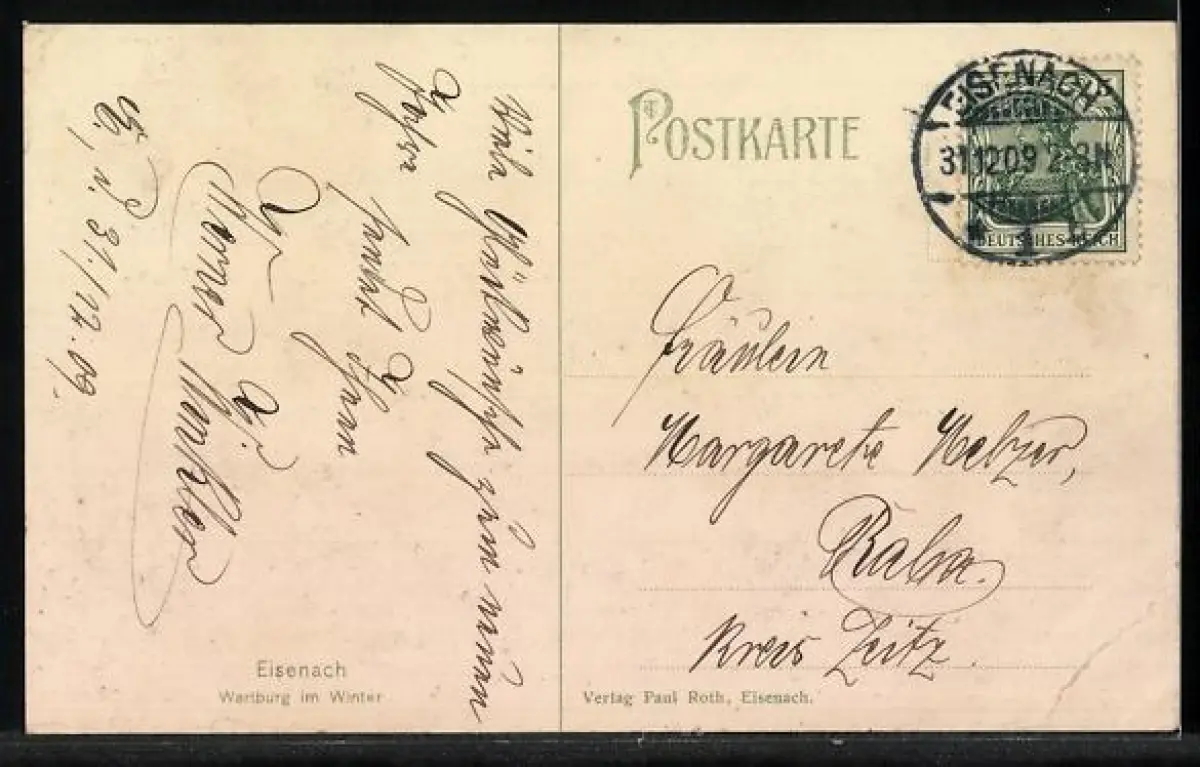 Viele Glückwünsche zum neuen
Jahre sendet Ihnen
Ihr
Werner A. Winkler
E., d. 31./12.09.
Eisenach
Wartburg im Winter
POSTKARTE
EISENACH
31.12.09 2-3N
1
DEUTSCHES REICH
Fräulein
Margarete Melzer,
Raba.
Kreis Zeitz.
Verlag Paul Roth, Eisenach.